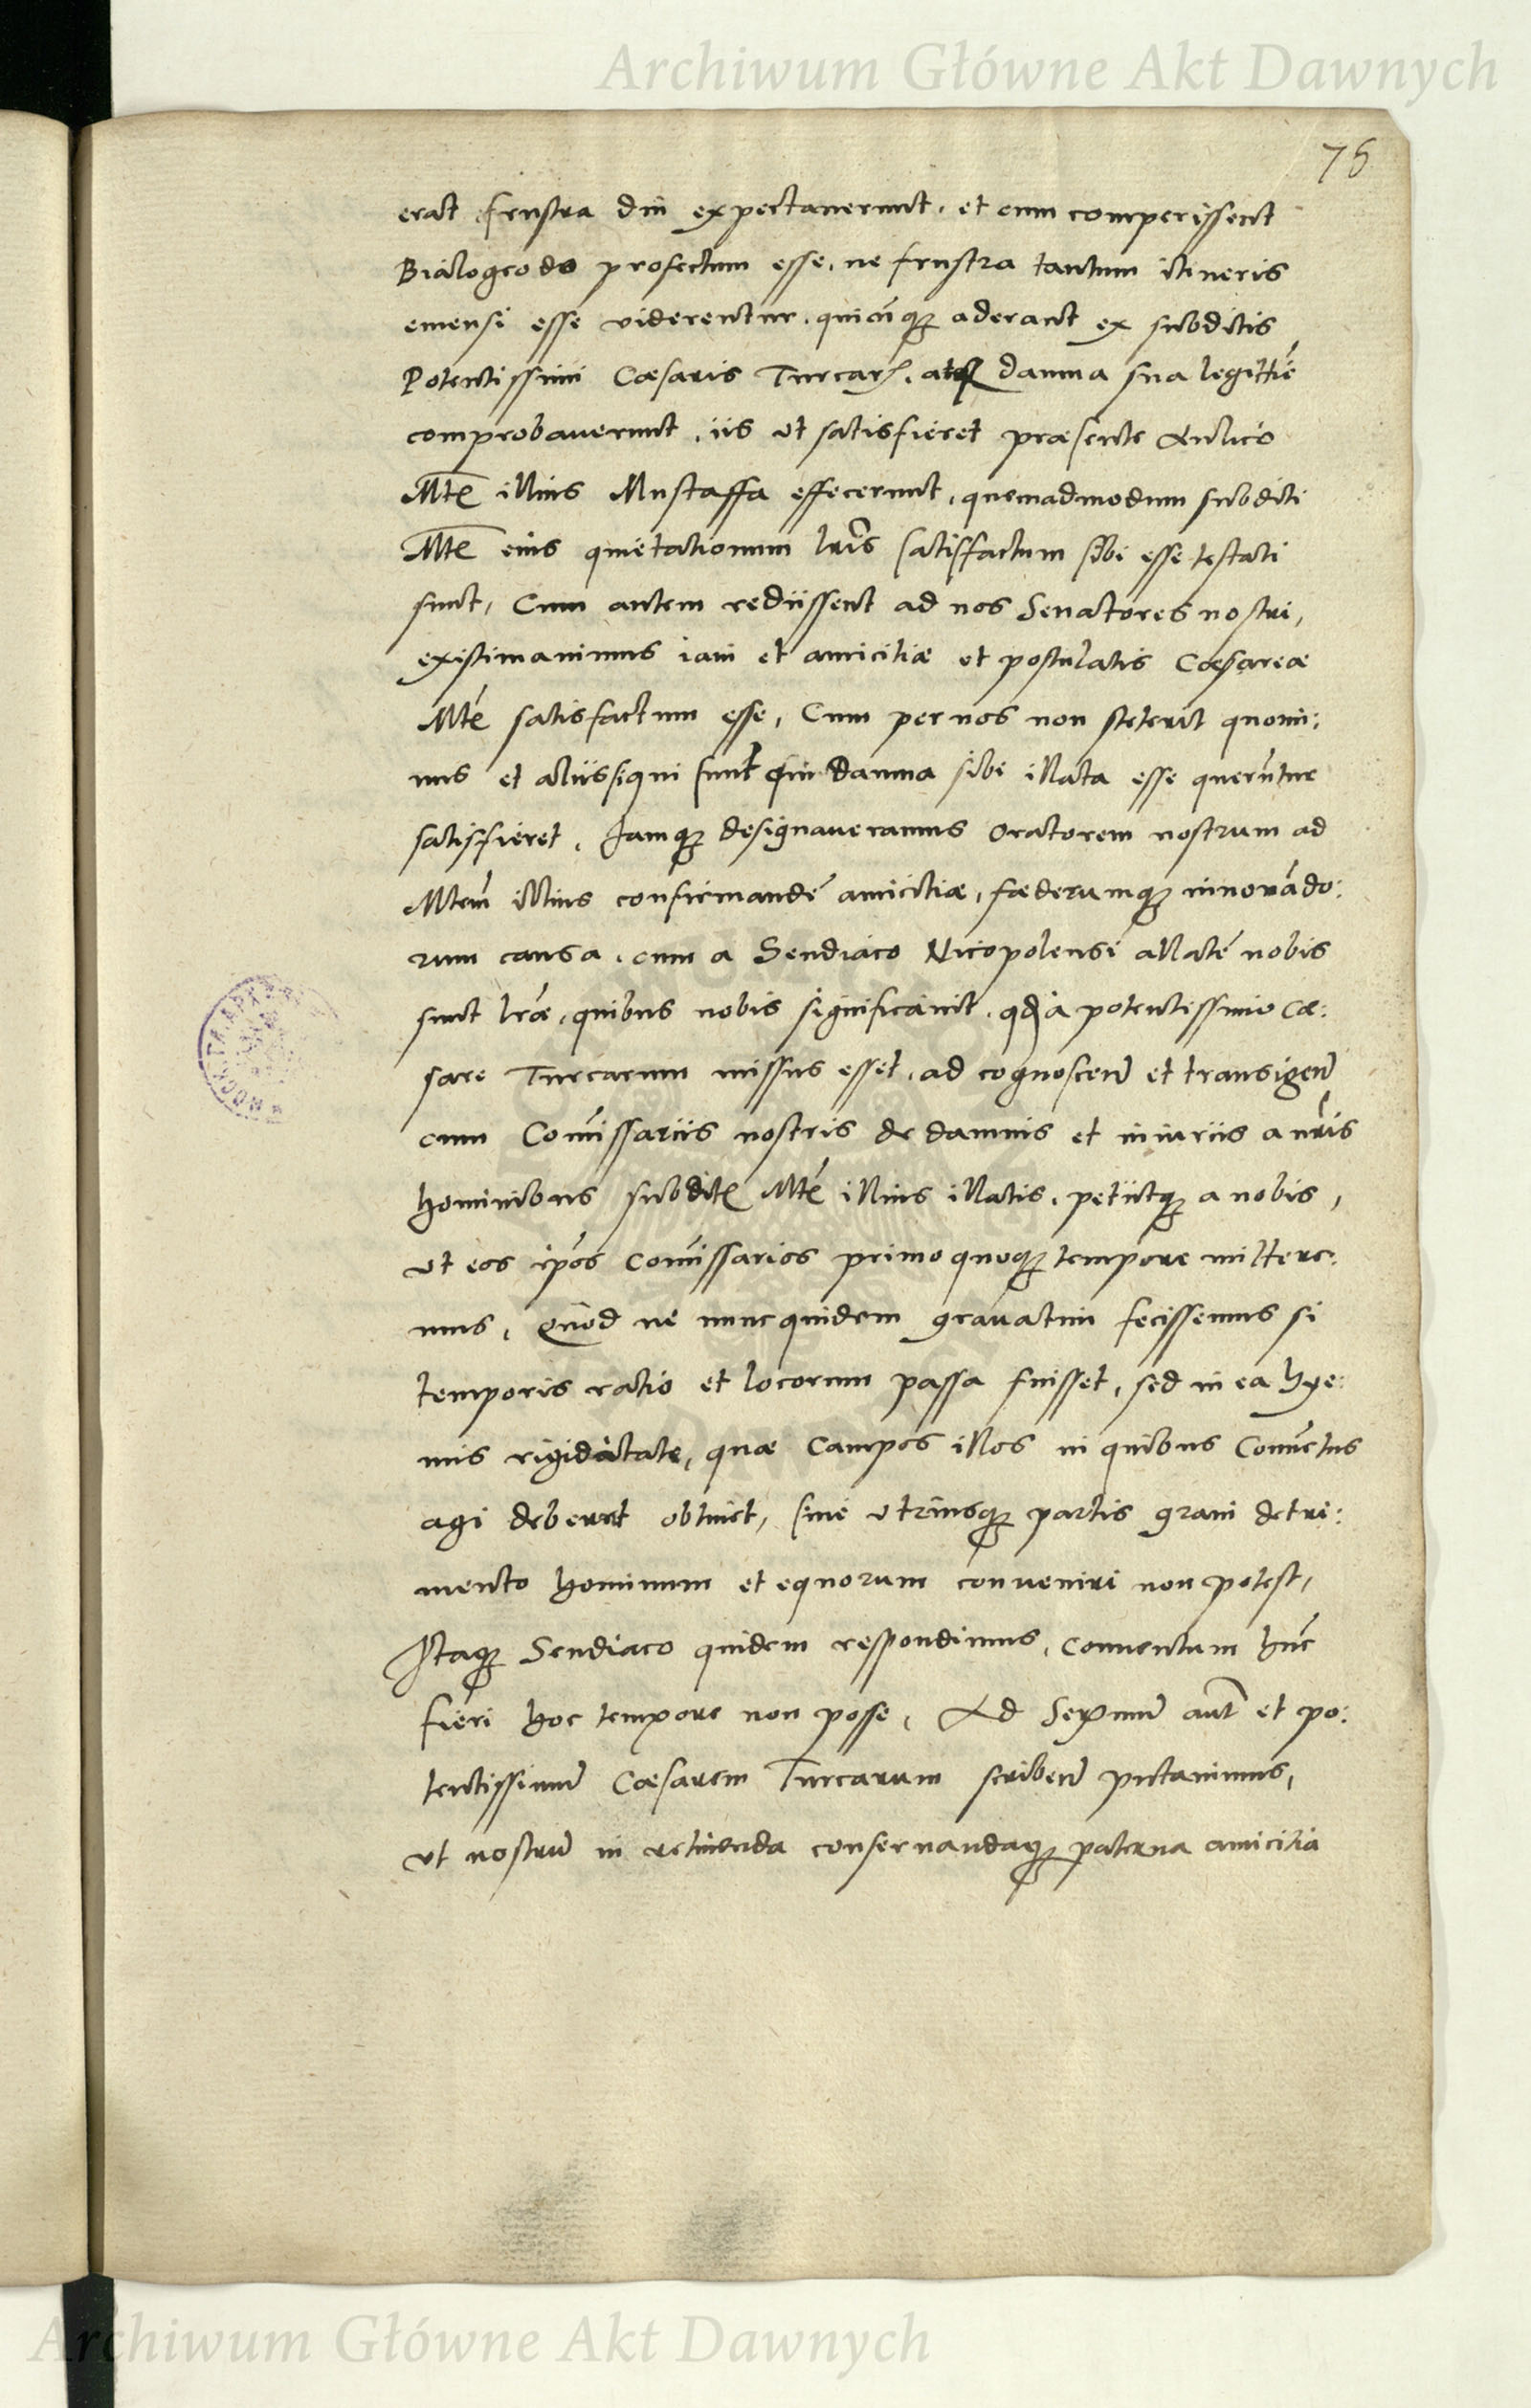 Archiwum Główne Akt Dawnych
75
erat frustra diu expectaverunt. et cum comperissent
Bialogrodo profectum esse, ne frustra tantum itineris
emensi esse viderentur. quicunq; aderant ex subditis
Potentissimi Cæsaris Turcar. atq; damna sua legittime
comprobaverunt, iis ut satisfieret præsente Aulico
Mtis illius Mustaffa effecerunt, quemadmodum subditi
Mtis eius quietationum lris satisfactum sibi esse testati
sunt, Cum autem rediissent ad nos Senatores nostri,
existimavimus iam et amicitiæ et postulatis Cæsareæ
Mtis satisfactum esse, Cum per nos non steterit quomi:
nus et aliis siqui sunt qui damna sibi illata esse querutur
satisfieret. Jamq; designaveramus Oratorem nostrum ad
Mtem illius confirmandæ amicitiæ, fæderumq; innovado:
rum causa, cum a Sendiaco Nicopolensi allatæ nobis
sunt lræ, quibus nobis significavit, qd a potentissimo Cæ:
sare Turcarum missus esset, ad cognoscen et transigen
cum Comissariis nostris de damnis et iniuriis a nris
hominibus subditis Mtis illius illatis, petiitq; a nobis,
ut eos ipos Comissarios primo quoq; tempore mittere:
mus, Quod ne nunc quidem gravatim fecissemus si
temporis ratio et locorum passa fuisset, sed in ea hye:
mis rigiditate, quæ Campos illos in quibus Conventus
agi deberet obtinet, sine utriusq; partis gravi detri:
mento hominum et equorum conveniri non potest,
Itaq; Sendiaco quidem respondimus, Conventum hunc
fieri hoc tempore non posse, Ad Sermum aut et po:
tentissimu Cæsarem Turcarum scriben putavimus,
ut nostru in retinenda conservandaq; paterna amicitia
Archiwum Główne Akt Dawnych